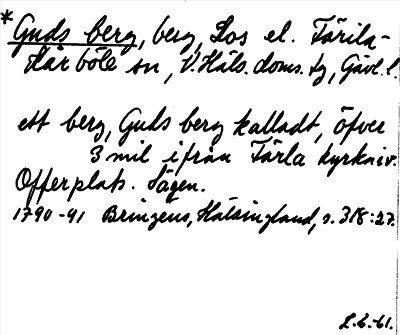 *Guds berg, berg, Los el. Färila-
Kårböle sn, V. Häls. doms. tg, Gävl. l.
ett berg, Guds berg kalladt, öfver
3 mil ifrån Färla kyrka iv.
Offerplats. Sägen.
1790-91 Bringeus, Hälsingland, s. 318:27.
L.L.-61.